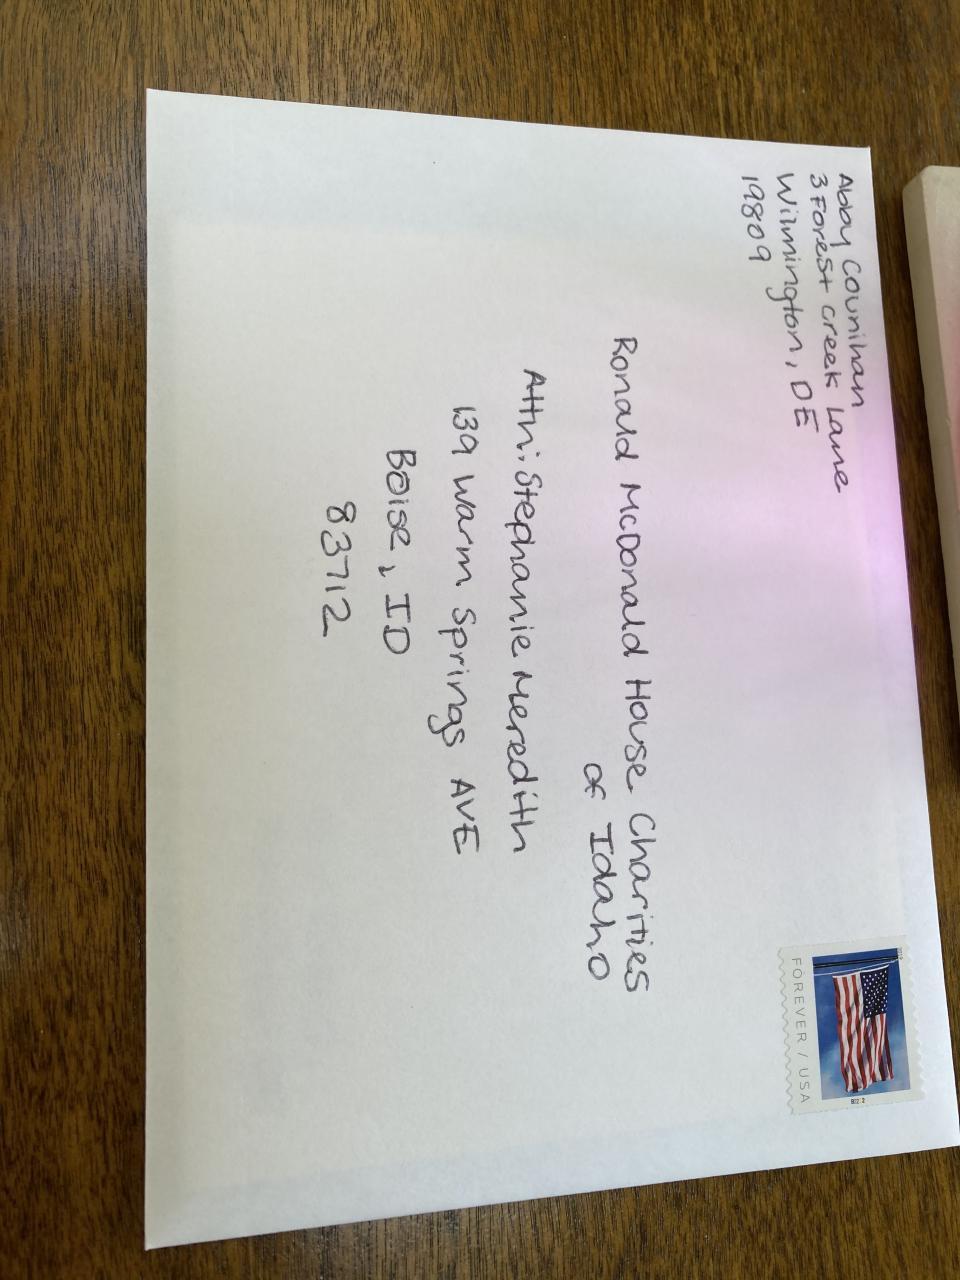 Abby Counihan
3 Forest Creek Lane
Wilmington, DE
19809
Ronald McDonald House Charities
of Idaho
Attn: Stephanie Meredith
139 Warm Springs AVE
Boise, ID
83712
FOREVER / USA